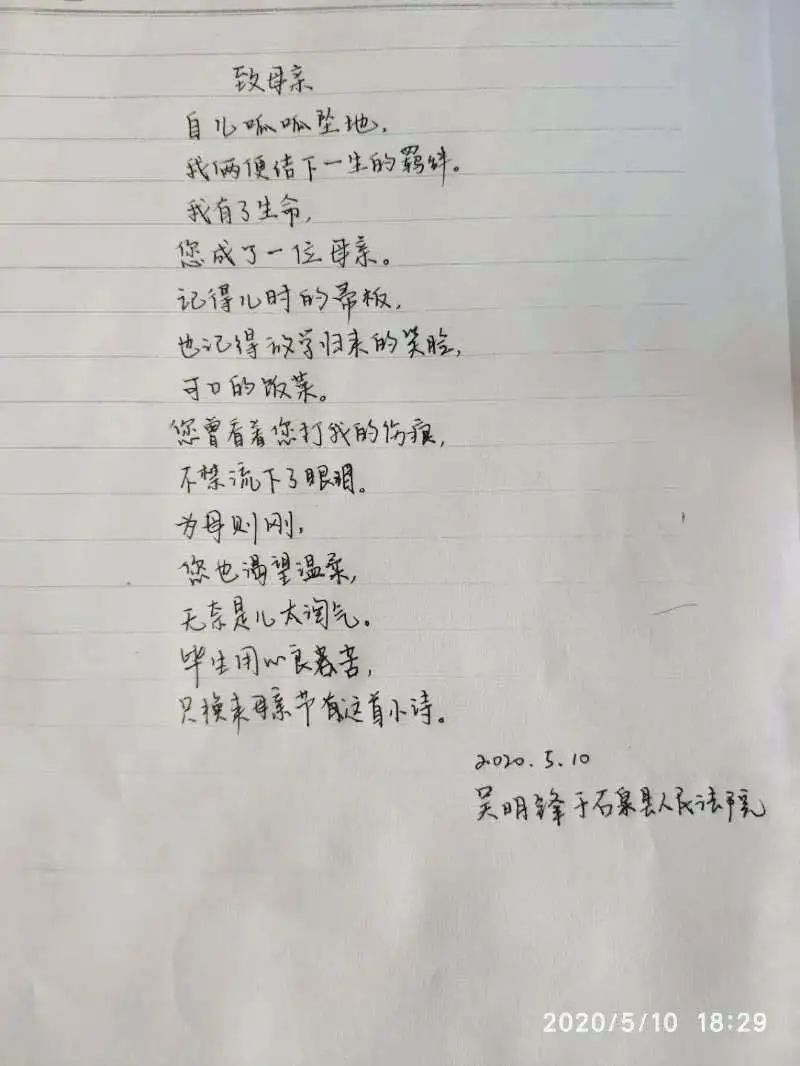 致母亲
自儿呱呱坠地,
我俩便结下一生的羁绊。
我有了生命,
您成了一位母亲。
记得儿时的帚板,
也记得放学归来的笑脸,
可口的饭菜。
您曾看着您打我的伤痕,
不禁流下了眼泪。
为母则刚,
您也渴望温柔,
无奈是儿太淘气。
毕生用心良苦,
只换来母亲节有这首小诗。
2020.5.10
吴明锋于石泉县人民法院
2020/5/10 18:29